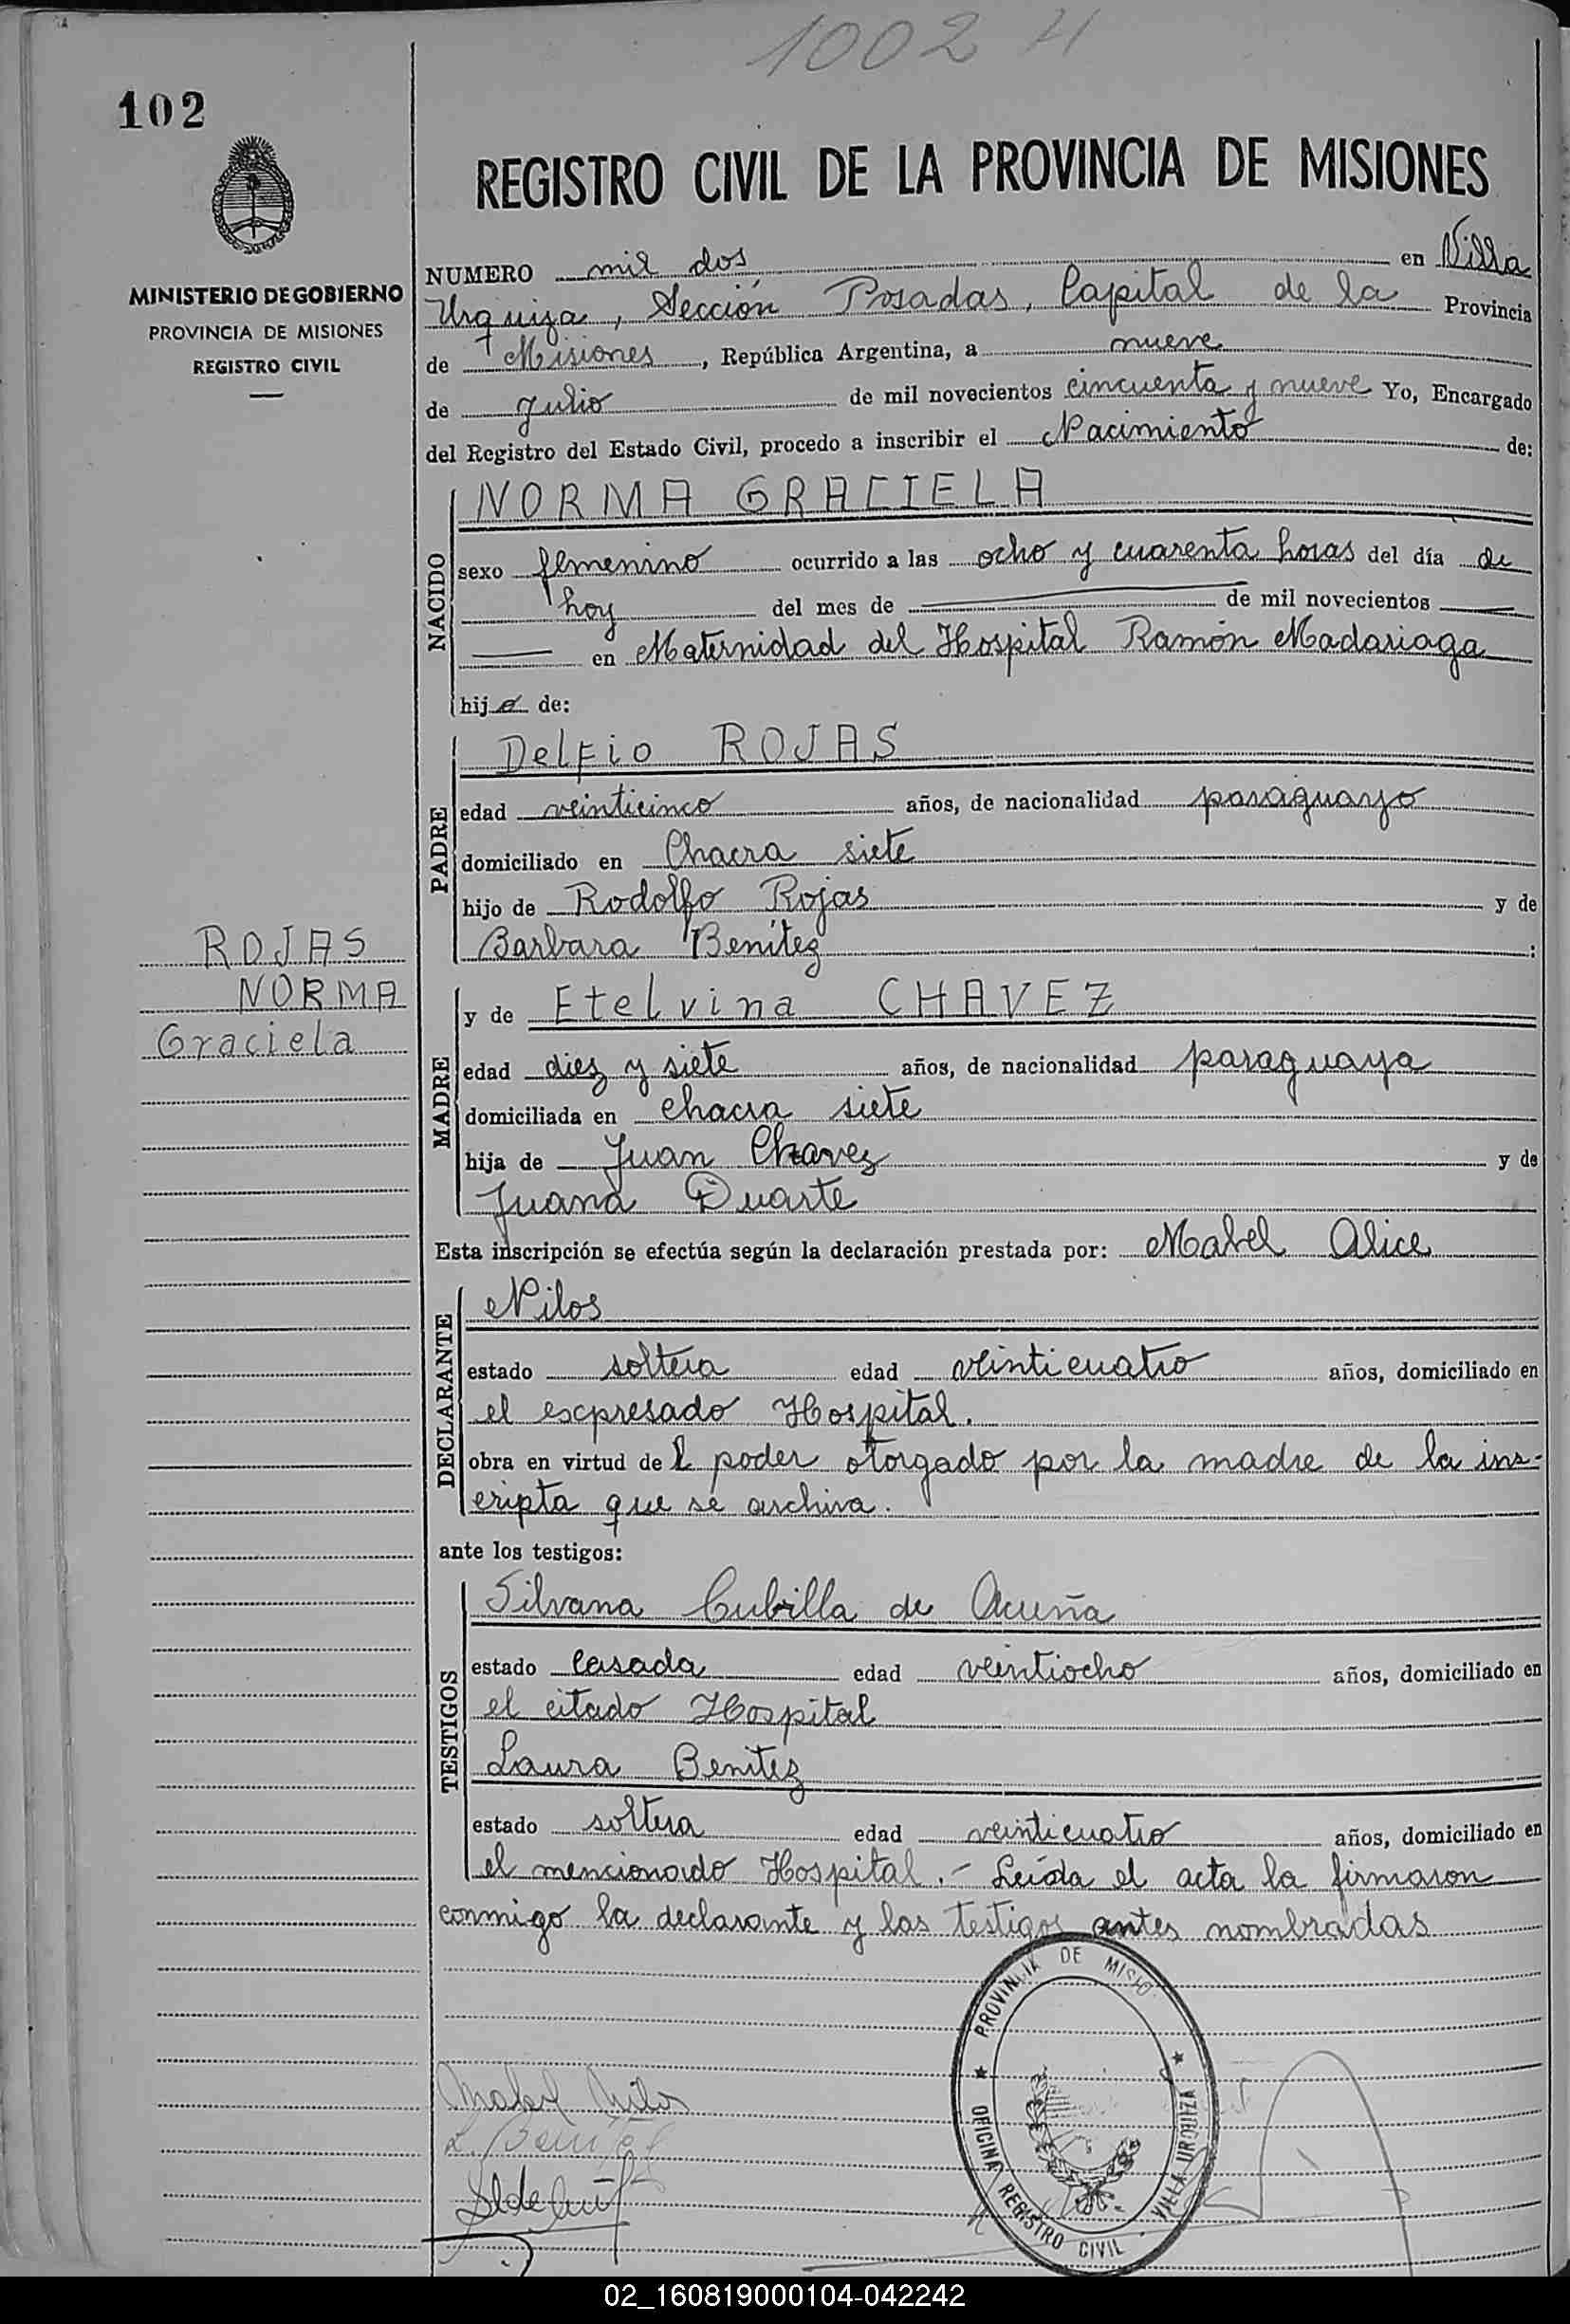 1002 H
102
REGISTRO CIVIL DE LA PROVINCIA DE MISIONES
MINISTERIO DE GOBIERNO
PROVINCIA DE MISIONES
REGISTRO CIVIL
NUMERO mil dos en Villa
Urquiza, Sección Posadas, Capital de la Provincia
de Misiones, República Argentina, a nueve
de Julio de mil novecientos cincuenta y nueve Yo, Encargado
del Registro del Estado Civil, procedo a inscribir el Nacimiento de:
NACIDO
NORMA GRACIELA
sexo femenino ocurrido a las ocho y cuarenta horas del día de
hoy del mes de de mil novecientos
en Maternidad del Hospital Ramón Madariaga
hija de:
PADRE
Delfio ROJAS
edad veinticinco años, de nacionalidad paraguayo
domiciliado en Chacra siete
hijo de Rodolfo Rojas y de
Barbara Benítez :
ROJAS
NORMA
Graciela
MADRE
y de Etelvina CHAVEZ
edad diez y siete años, de nacionalidad paraguaya
domiciliada en chacra siete
hija de Juan Chavez y de
Juana Duarte
Esta inscripción se efectúa según la declaración prestada por: Mabel Alice
DECLARANTE
Nilos
estado soltera edad veinticuatro años, domiciliado en
el expresado Hospital.
obra en virtud del poder otorgado por la madre de la ins-
cripta que se archiva.
ante los testigos:
TESTIGOS
Silvana Cubilla de Acuña
estado casada edad veintiocho años, domiciliado en
el citado Hospital
Laura Benitez
estado soltera edad veinticuatro años, domiciliado en
el mencionado Hospital.- Leída el acta la firmaron
conmigo la declarante y las testigos antes nombradas
PROVINCIA DE MISIO
OFICINA REGISTRO CIVIL
VILLA URQUIZA
Mabel Nilos
L. Benítez
02_160819000104-042242